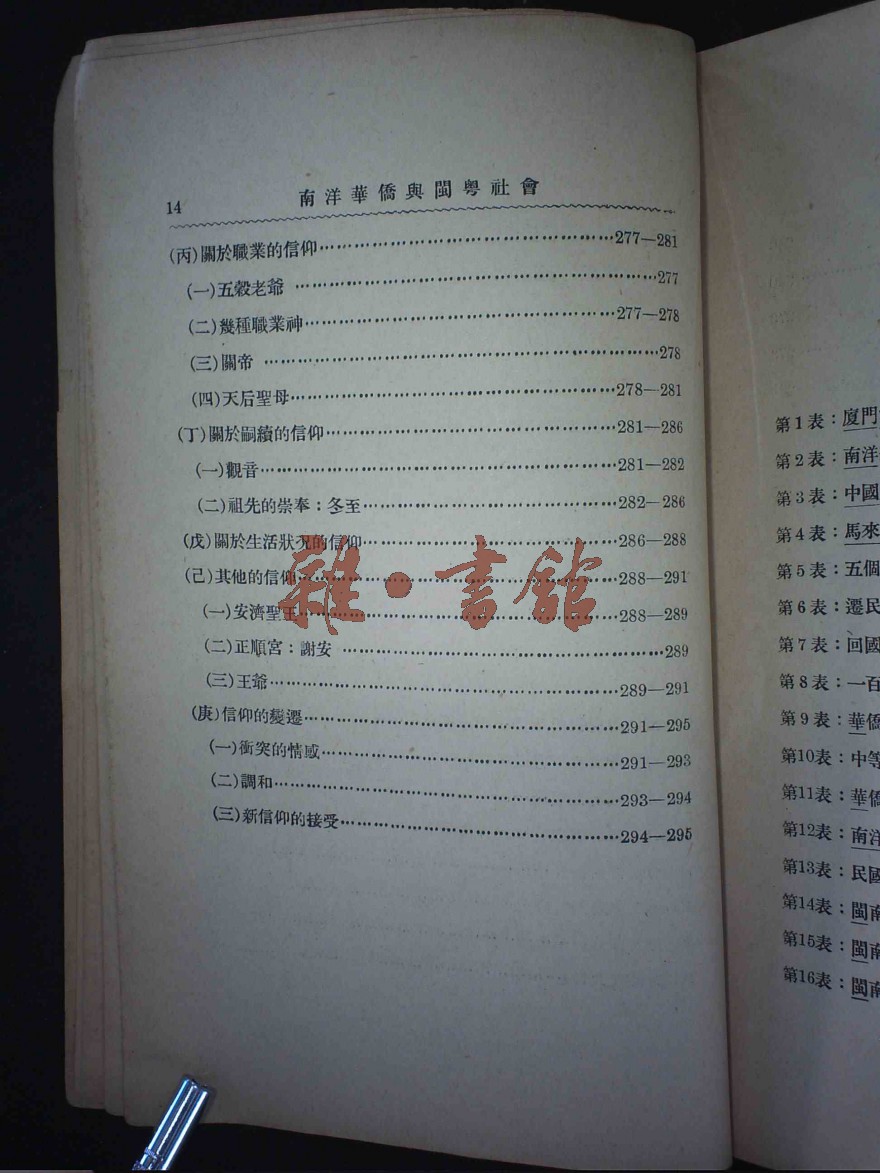 14 南洋華僑與閩粵社會
(丙)關於職業的信仰………277—281
(一)五穀老爺………277
(二)幾種職業神………277—278
(三)關帝………278
(四)天后聖母………278—281
(丁)關於嗣續的信仰………281—286
(一)觀音………281—282
(二)祖先的崇奉：冬至………282—286
(戊)關於生活狀況的信仰………286—288
(己)其他的信仰………288—291
(一)安濟聖王………288—289
(二)正順宮：謝安………289
(三)王爺………289—291
(庚)信仰的變遷………291—295
(一)衝突的情感………291—293
(二)調和………293—294
(三)新信仰的接受………294—295
雜·書館
第1表：廈門
第2表：南洋
第3表：中國
第4表：馬來
第5表：五個
第6表：遷民
第7表：回國
第8表：一百
第9表：華僑
第10表：中等
第11表：華僑
第12表：南洋
第13表：民國
第14表：閩南
第15表：閩南
第16表：閩南